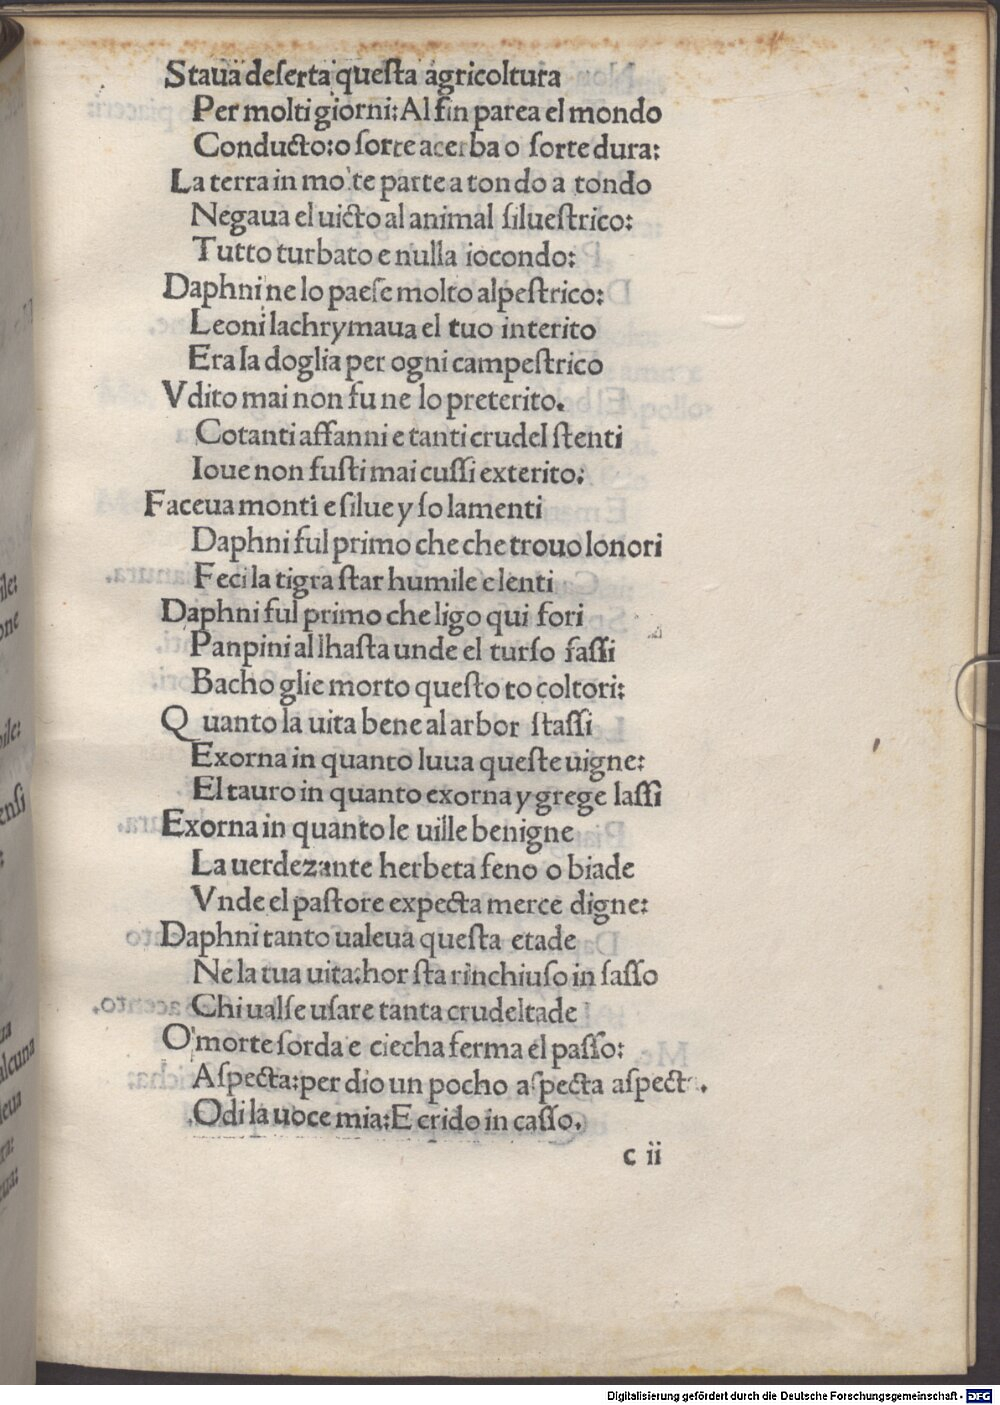 Staua deſerta queſta agricoltura
Per molti giorni: Al fin parea el mondo
Conducto: o ſorte acerba o ſorte dura:
La terra in molte parte a tondo a tondo
Negaua el uicto al animal ſilueſtrico:
Tutto turbato e nulla iocondo:
Daphni ne lo paeſe molto alpeſtrico:
Leoni lachrymaua el tuo interito
Era la doglia per ogni campeſtrico
Vdito mai non fu ne lo preterito.
Cotanti affanni e tanti crudel ſtenti
Ioue non fuſti mai cuſſi exterito:
Faceua monti e ſilue y ſo lamenti
Daphni ful primo che che trouo lonori
Feci la tigra ſtar humile e lenti
Daphni ful primo che ligo qui fori
Panpini al lhaſta unde el turſo faſſi
Bacho glie morto queſto to coltori:
Quanto la uita bene al arbor ſtaſſi
Exorna in quanto luua queſte uigne:
El tauro in quanto exorna y grege laſſi
Exorna in quanto le uille benigne
La uerdezante herbeta feno o biade
Vnde el paſtore expecta merce digne:
Daphni tanto ualeua queſta etade
Ne la tua uita: hor ſta rinchiuſo in ſaſſo
Chi ualſe uſare tanta crudeltade
O morte ſorda e ciecha ferma el paſſo:
Aſpecta: per dio un pocho aſpecta aſpecta.
Odi la uoce mia: E crido in caſſo.
c ii
Digitalisierung gefördert durch die Deutsche Forschungsgemeinschaft - DFG